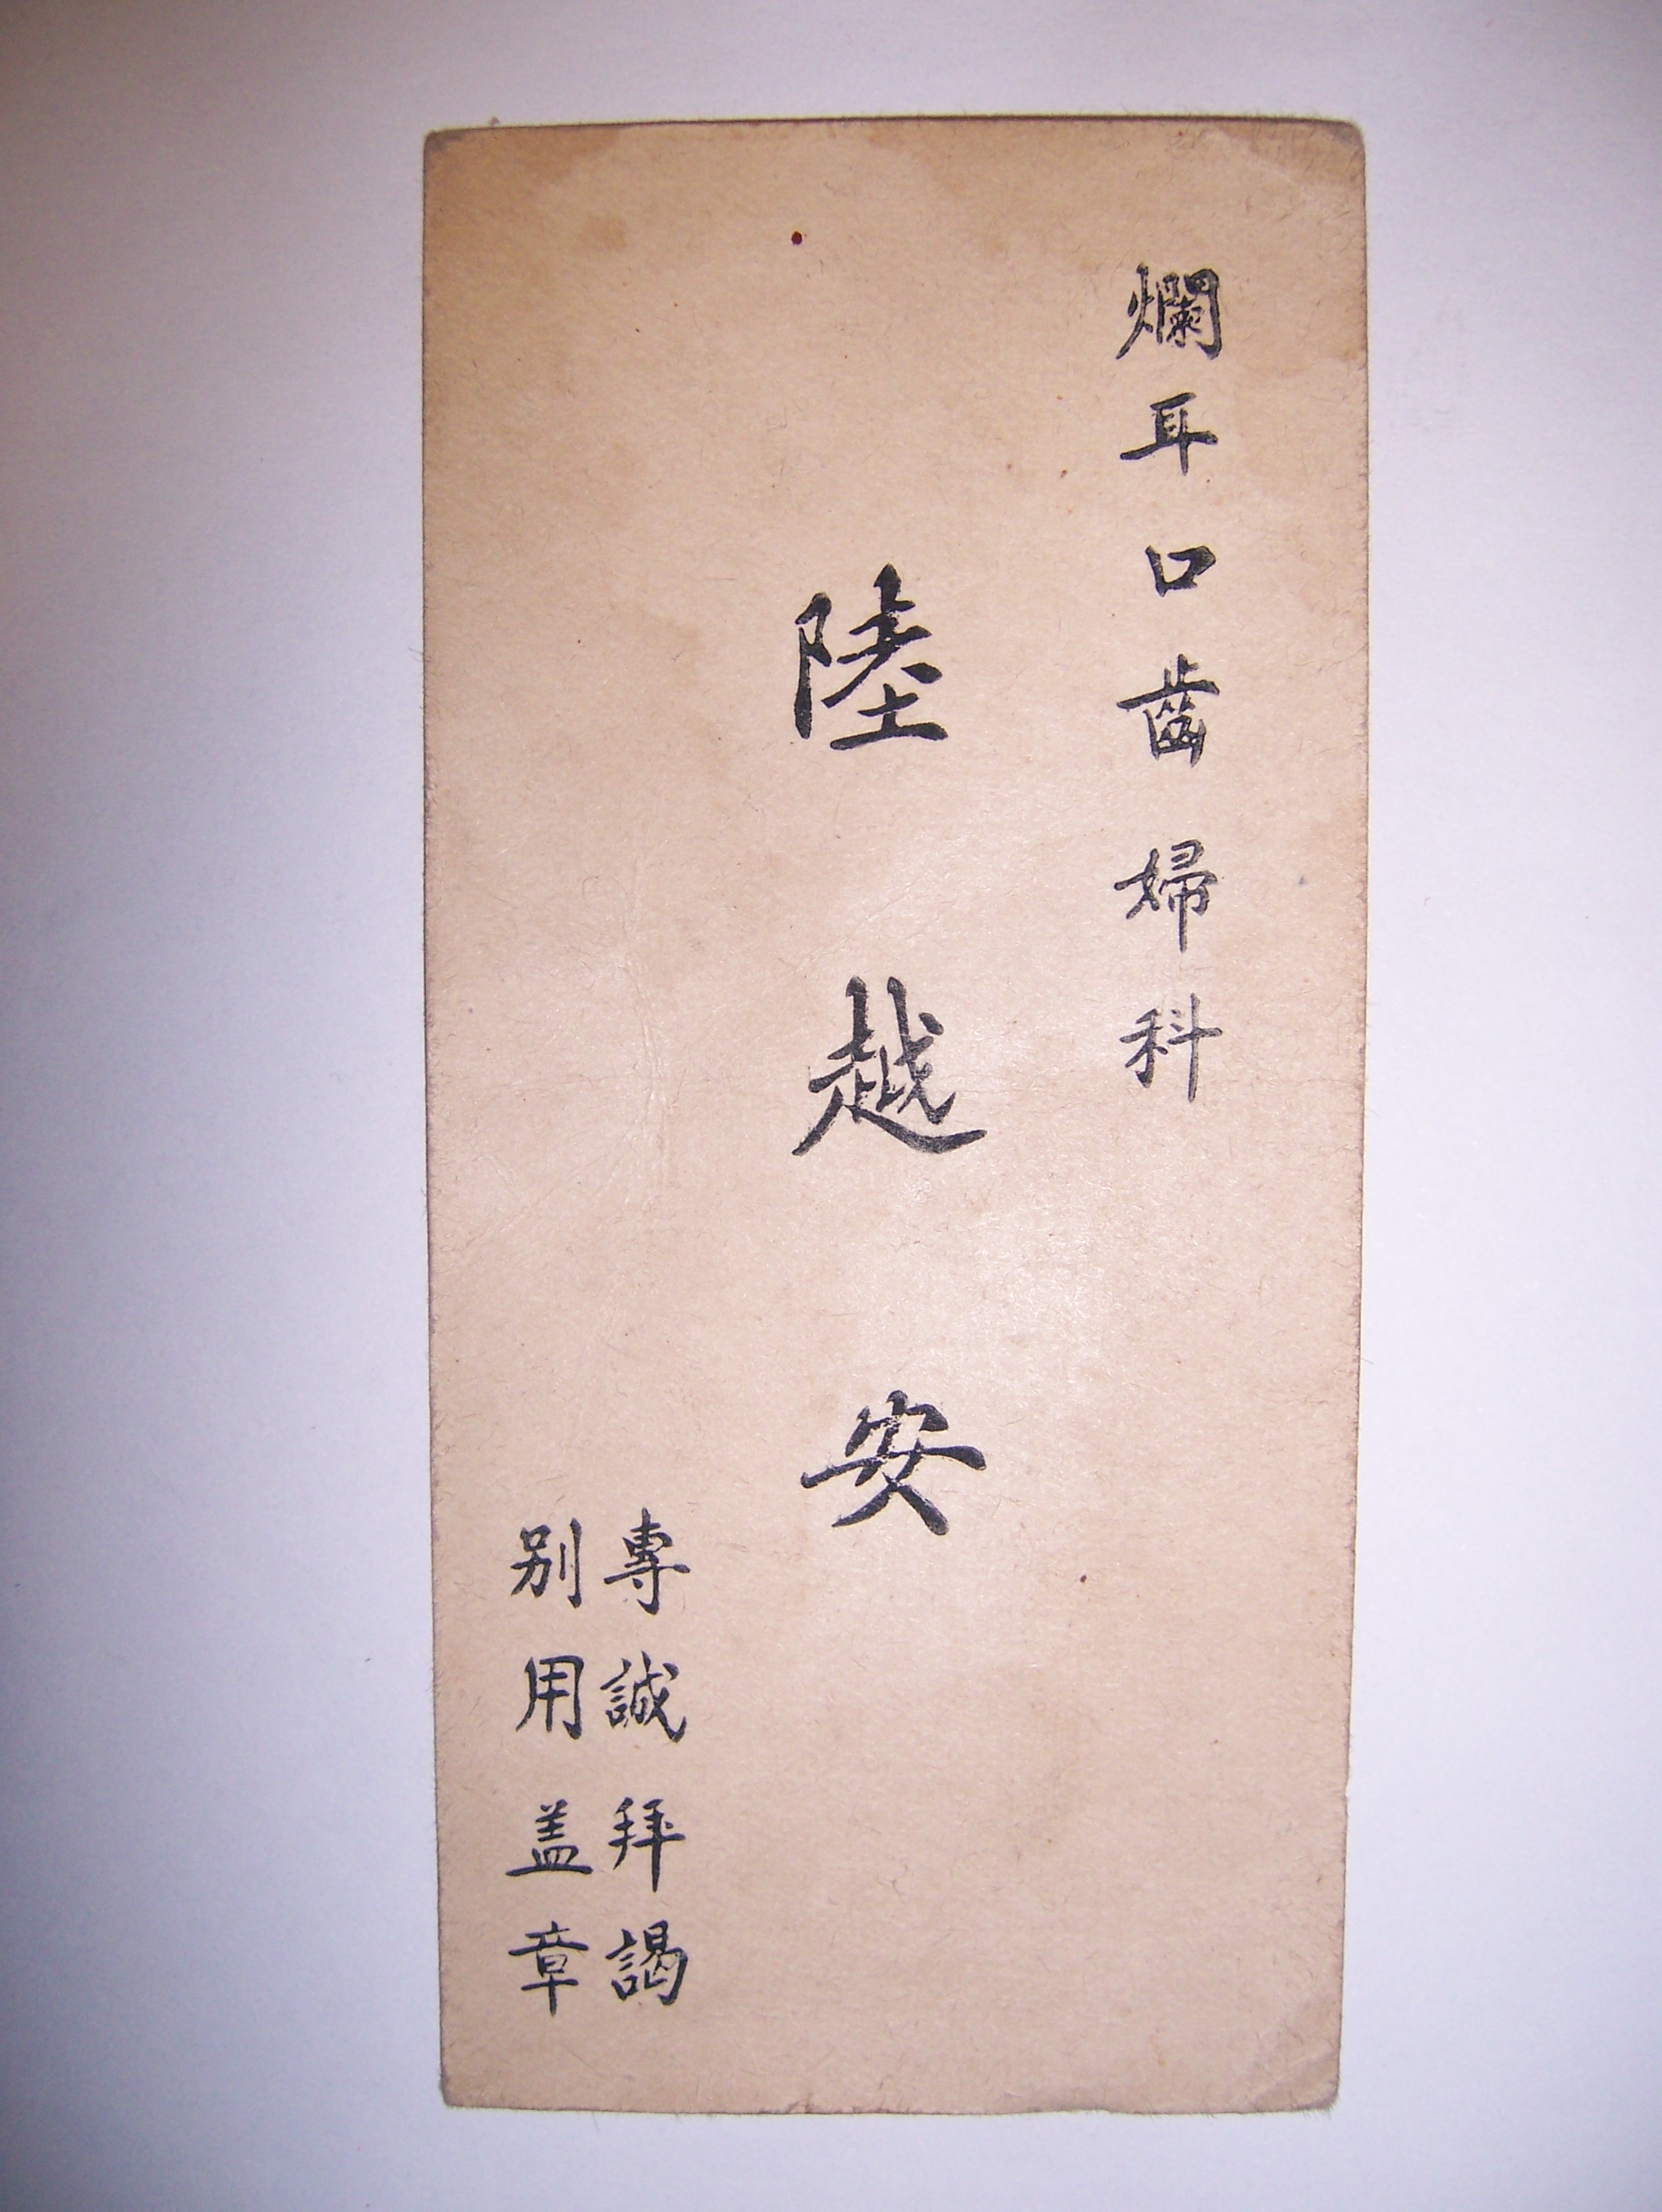 爛耳口齒婦科
陸越安
專誠拜謁
别用盖章